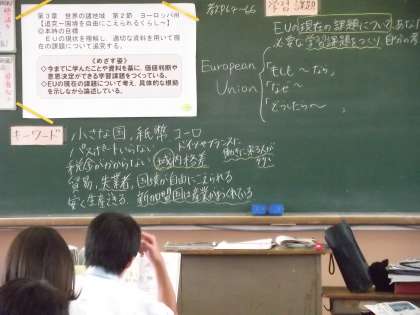 第3章 世界の諸地域 第2節 ヨーロッパ州
【追究～国境を自由にこえられるくらし～】
◎本時の目標
EUの現状を理解し、適切な資料を用いて現在の課題について追究する。
《めざす姿》
◇今までに学んだことや資料を基に、価値判断や
意思決定ができる学習課題をつくっている。
◇EUの現在の課題について考え、具体的な根拠
を示しながら論述している。
P64~65
学習課題
EUの現在の課題について、
必要な学習課題をつくり 自分の考
European
Union
「もしも~なら、
「なぜ~
「どうしたら~
キーワード
小さな国、紙幣 ユーロ
パスポートいらない
ドイツやフランスに
働きに来る人が
多い
税金がかからない 域内格差
貿易、失業者、国境が自由にこえられる
安く生産できる 新加盟国は産業がおくれている